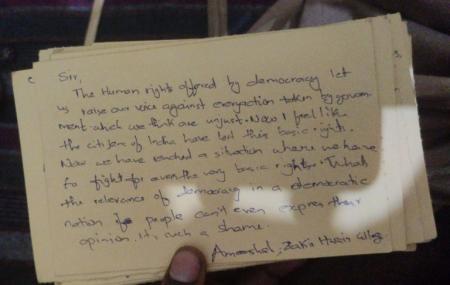 Sir,
The Human rights offered by democracy let
us raise our voice against every action taken by govern-
ment which we think are unjust. Now I feel like
the citizen of India have lost their basic rights.
Now we have reached a situation where we have
to fight for even the very basic rights. What's
the relevance of democracy in a democratic
nation if people can't even express their
opinion. It's such a shame.
Zakir Husain